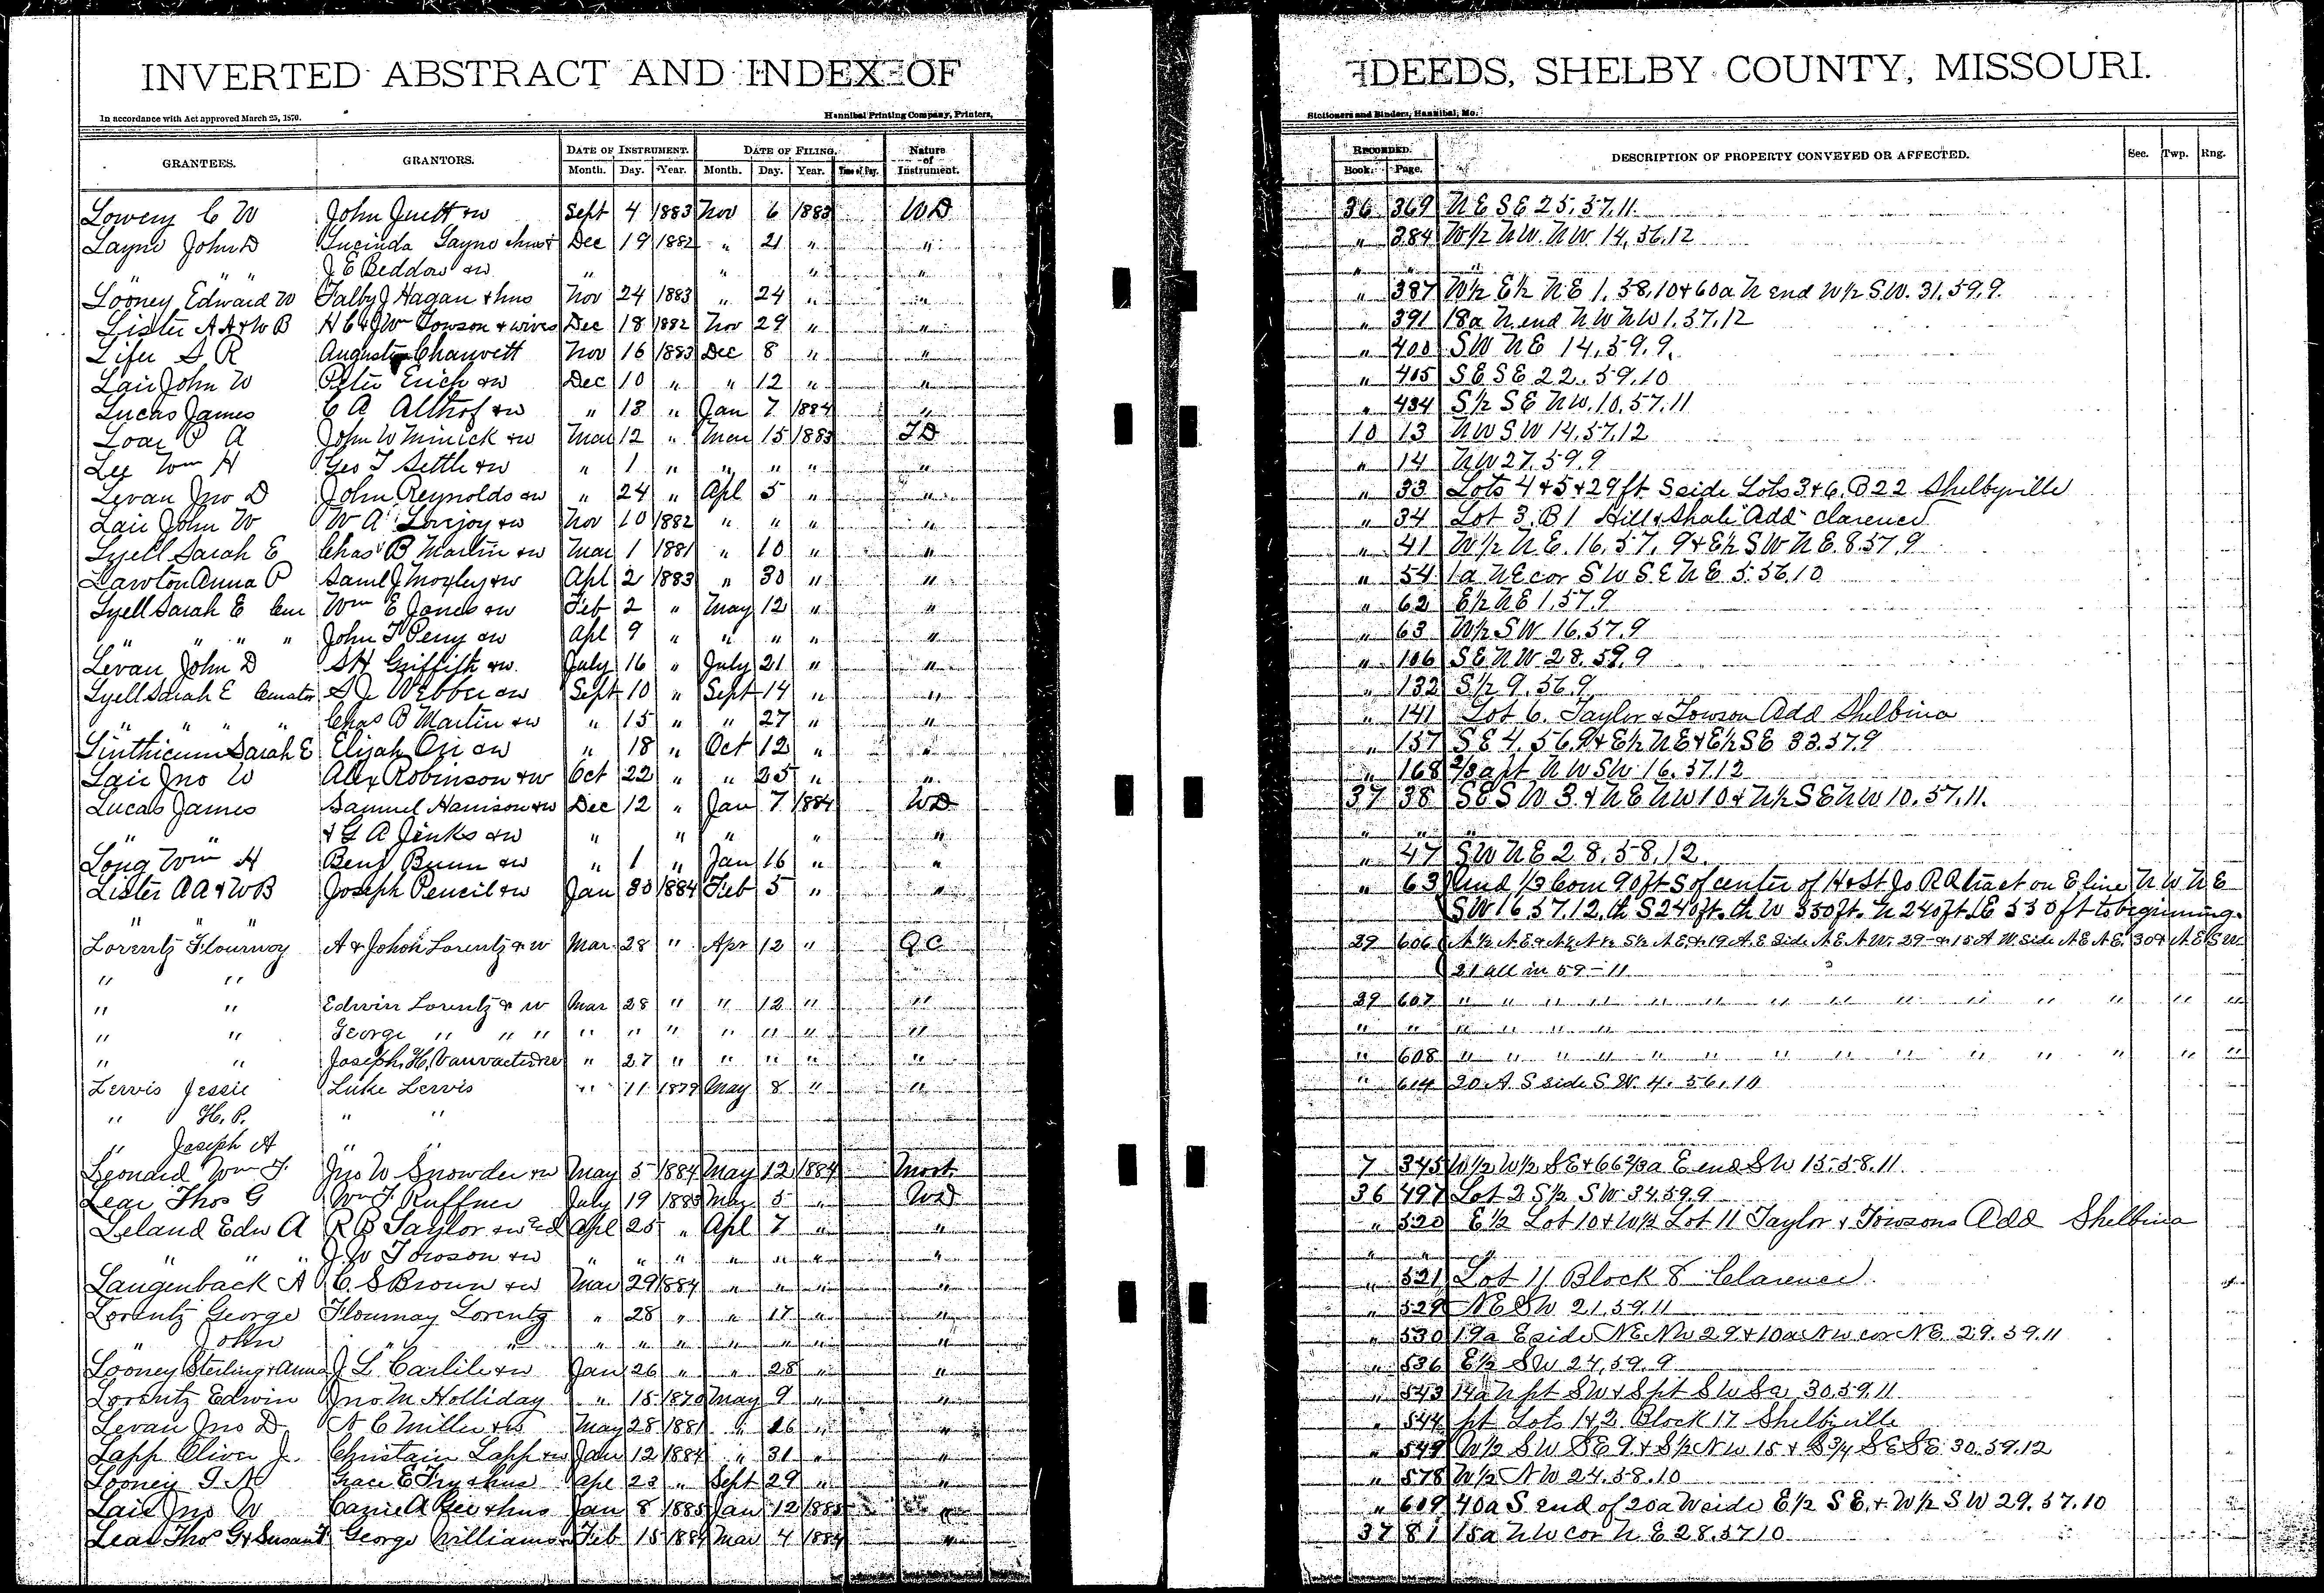 INVERTED ABSTRACT AND INDEX OF DEEDS, SHELBY COUNTY, MISSOURI.
In accordance with Act approved March 25, 1870. Hannibal Printing Company, Printers, Stationers and Binders, Hannibal, Mo.
GRANTEES. GRANTORS. DATE OF INSTRUMENT. DATE OF FILING. Nature of Instrument. RECORDED. DESCRIPTION OF PROPERTY CONVEYED OR AFFECTED. Sec. Twp. Rng.
Month. Day. Year. Month. Day. Year. Time of Day. Book. Page.
Lowery C W John Juett & w Sept 4 1883 Nov 6 1883 W D 36 369 N E S E 25.57.11
Layne John D Lucinda Layne & hus & Dec 19 1882 " 21 " " " 384 W 1/2 N W N W 14.56.12
" " J E Beddow & w " " " " "
Looney Edward W Talby J Hagan & hus Nov 24 1883 " 24 " " " 387 W 1/2 E 1/2 N E 1.58.10 & 60a N end W 1/2 S.W. 31.59.9.
Lister A A & W B H C & J Wm Towson & wives Dec 18 1882 Nov 29 " " " 391 18a N end N W N W 1.57.12
Lifer S R Chauvett Nov 16 1883 Dec 8 " " " 400 S W N E 14.59.9.
Lair John W Peter Erich & w Dec 10 " " 12 " " " 405 S E S E 22.59.10
Lucas James C A Althof & w " 13 " Jan 7 1884 " " 434 S 1/2 S E N W. 10.57.11
Loar P A John W Minick & w Mar 12 " Mar 15 1883 T D 10 13 N W S W 14.57.12
Lee Wm H Geo T Settle & w " 1 " " " " " " 14 N W 27.59.9
Levan Jno D John Reynolds & w " 24 " Apl 5 " " " 33 Lots 4 & 5 & 29 ft S side Lots 3 & 6. B 22 Shelbyville
Lair John W W A Lovejoy & w Nov 10 1882 " " " " " 34 Lot 3. B 1 Hill & Shale Add Clarence
Lyell Sarah E Chas B Martin & w Mar 1 1881 " 10 " " " 41 W 1/2 N.E. 16.57.9 & E 1/2 S W N E. 8.57.9
Lawton Anna P Saml J Moxley & w Apl 2 1883 " 30 " " " 54 1a N E cor S W S E N E 5.56.10
Lyell Sarah E Cur Wm E Jones & w Feb 2 " May 12 " " " 62 E 1/2 N E 1.57.9
" " " " John T Perry & w Apl 9 " " " " " " 63 W 1/2 S W 16.57.9
Levan John D S H Griffith & w July 16 " July 21 " " " 106 S E N W 28.59.9
Lyell Sarah E Curator S J Webber & w Sept 10 " Sept 14 " " " 132 S 1/2 9.56.9
" " " " Chas B Martin & w " 15 " " 27 " " " 141 Lot 6. Taylor & Towson Add Shelbina
Linthicum Sarah E Elijah & w " 18 " Oct 12 " " " 157 S E 4.56.9 & E 1/2 N E & E 1/2 S E 33.57.9
Lair Jno W Alex Robinson & w Oct 22 " " 25 " " " 168 2/3 a pt N W S W 16.57.12
Lucas James Samuel Harrison & w Dec 12 " Jan 7 1884 W D 37 38 S E S W 3. & N E N W 10 & N 1/2 S E N W 10.57.11.
" " & G A Jinks & w " " " " " " "
Long Wm H Benj Bunn & w " 1 " Jan 16 " " " 47 S W N E 28.58.12.
Lister A A & W B Joseph Pencil & w Jan 30 1884 Feb 5 " " " 63 Und 1/3 Com 90 ft S of center of H & St Jo R R tract on E line N W N E
" " S W 16.57.12. th S 240 ft. th W 330 ft. N 240 ft. E 330 ft to beginning.
Lorentz Flournoy A & John Lorentz & w Mar 28 " Apr 12 " Q C 29 606 N 1/2 N E & N 1/2 N 1/2 S 1/2 N E & 19 A E Side N E N W. 29 & 15 A W. Side N E N E. 30 & N E S W
" " 21 all in 59 - 11
" " Edwin Lorentz & w Mar 28 " " 12 " " 29 607 " " " " " " " " " " " "
" " George " " " " " " " " " " " "
" " Joseph H. Vanvactor " 27 " " " " " " 608 " " " " " " " " " " " "
Lervis Jessie Luke Lervis " 11 1879 May 8 " " " 614 20 A S side S W. 4. 56.10
" H. P. " "
" Joseph A " "
Leonard Wm T. Jno W Snowder & w May 5 1884 May 12 1884 Mort. 7 345 W 1/2 W 1/2 S E & 66 2/3 a E end S W 15.58.11
Lear Thos G Wm T. Ruffner July 19 1883 Mar 5 " W D 36 497 Lot 2 S 1/2 S W 34.59.9
Leland Edw A R B Taylor & w Apl 25 " Apl 7 " " " 520 E 1/2 Lot 10 & W 1/2 Lot 11 Taylor & Towsons Add Shelbina
" " " J. W Towson & w " " " " " " " " "
Langenback A C. S Brown & w Mar 29 1884 " " " " " 521 Lot 11 Block 8 Clarence
Lorentz George Flournoy Lorentz " 28 " " 17 " " " 529 N E S W 21.59.11
" John " " " " " " " " " 530 19a E side N E N W 29 & 10a N W cor N E. 29.59.11
Looney Sterling & Anna J. L. Carlile & w Jan 26 " " 28 " " " 536 E 1/2 S W 24.59.9
Lorentz Edwin Jno. M Holliday " 15 1870 May 9 " " " 543 14a N pt S W & S pt S W 30.59.11
Levan Jno D. N C Miller & w May 28 1881 " 26 " " " 544 pt Lots 1 & 2 Block 17 Shelbyville
Lapp Oliver J. Christain Lapp & w Jan 12 1884 " 31 " " " 549 W 1/2 S W S E 9 & S 1/2 N W 15 & S 3/4 S E S E 30.59.12
Looney I N Grace E Fry & hus Apl 23 " Sept 29 " " " 578 W 1/2 N W 24.58.10
Lair Jno W Carrie A Gee & hus Jan 8 1885 Jan 12 1885 " " 609 40a S. end of 20a W side E 1/2 S E. & W 1/2 S W 29.57.10
Lear Thos G & Susan T George Williams & w Feb 15 1884 Mar 4 1884 " 37 81 15a N W cor N. E 28.57.10